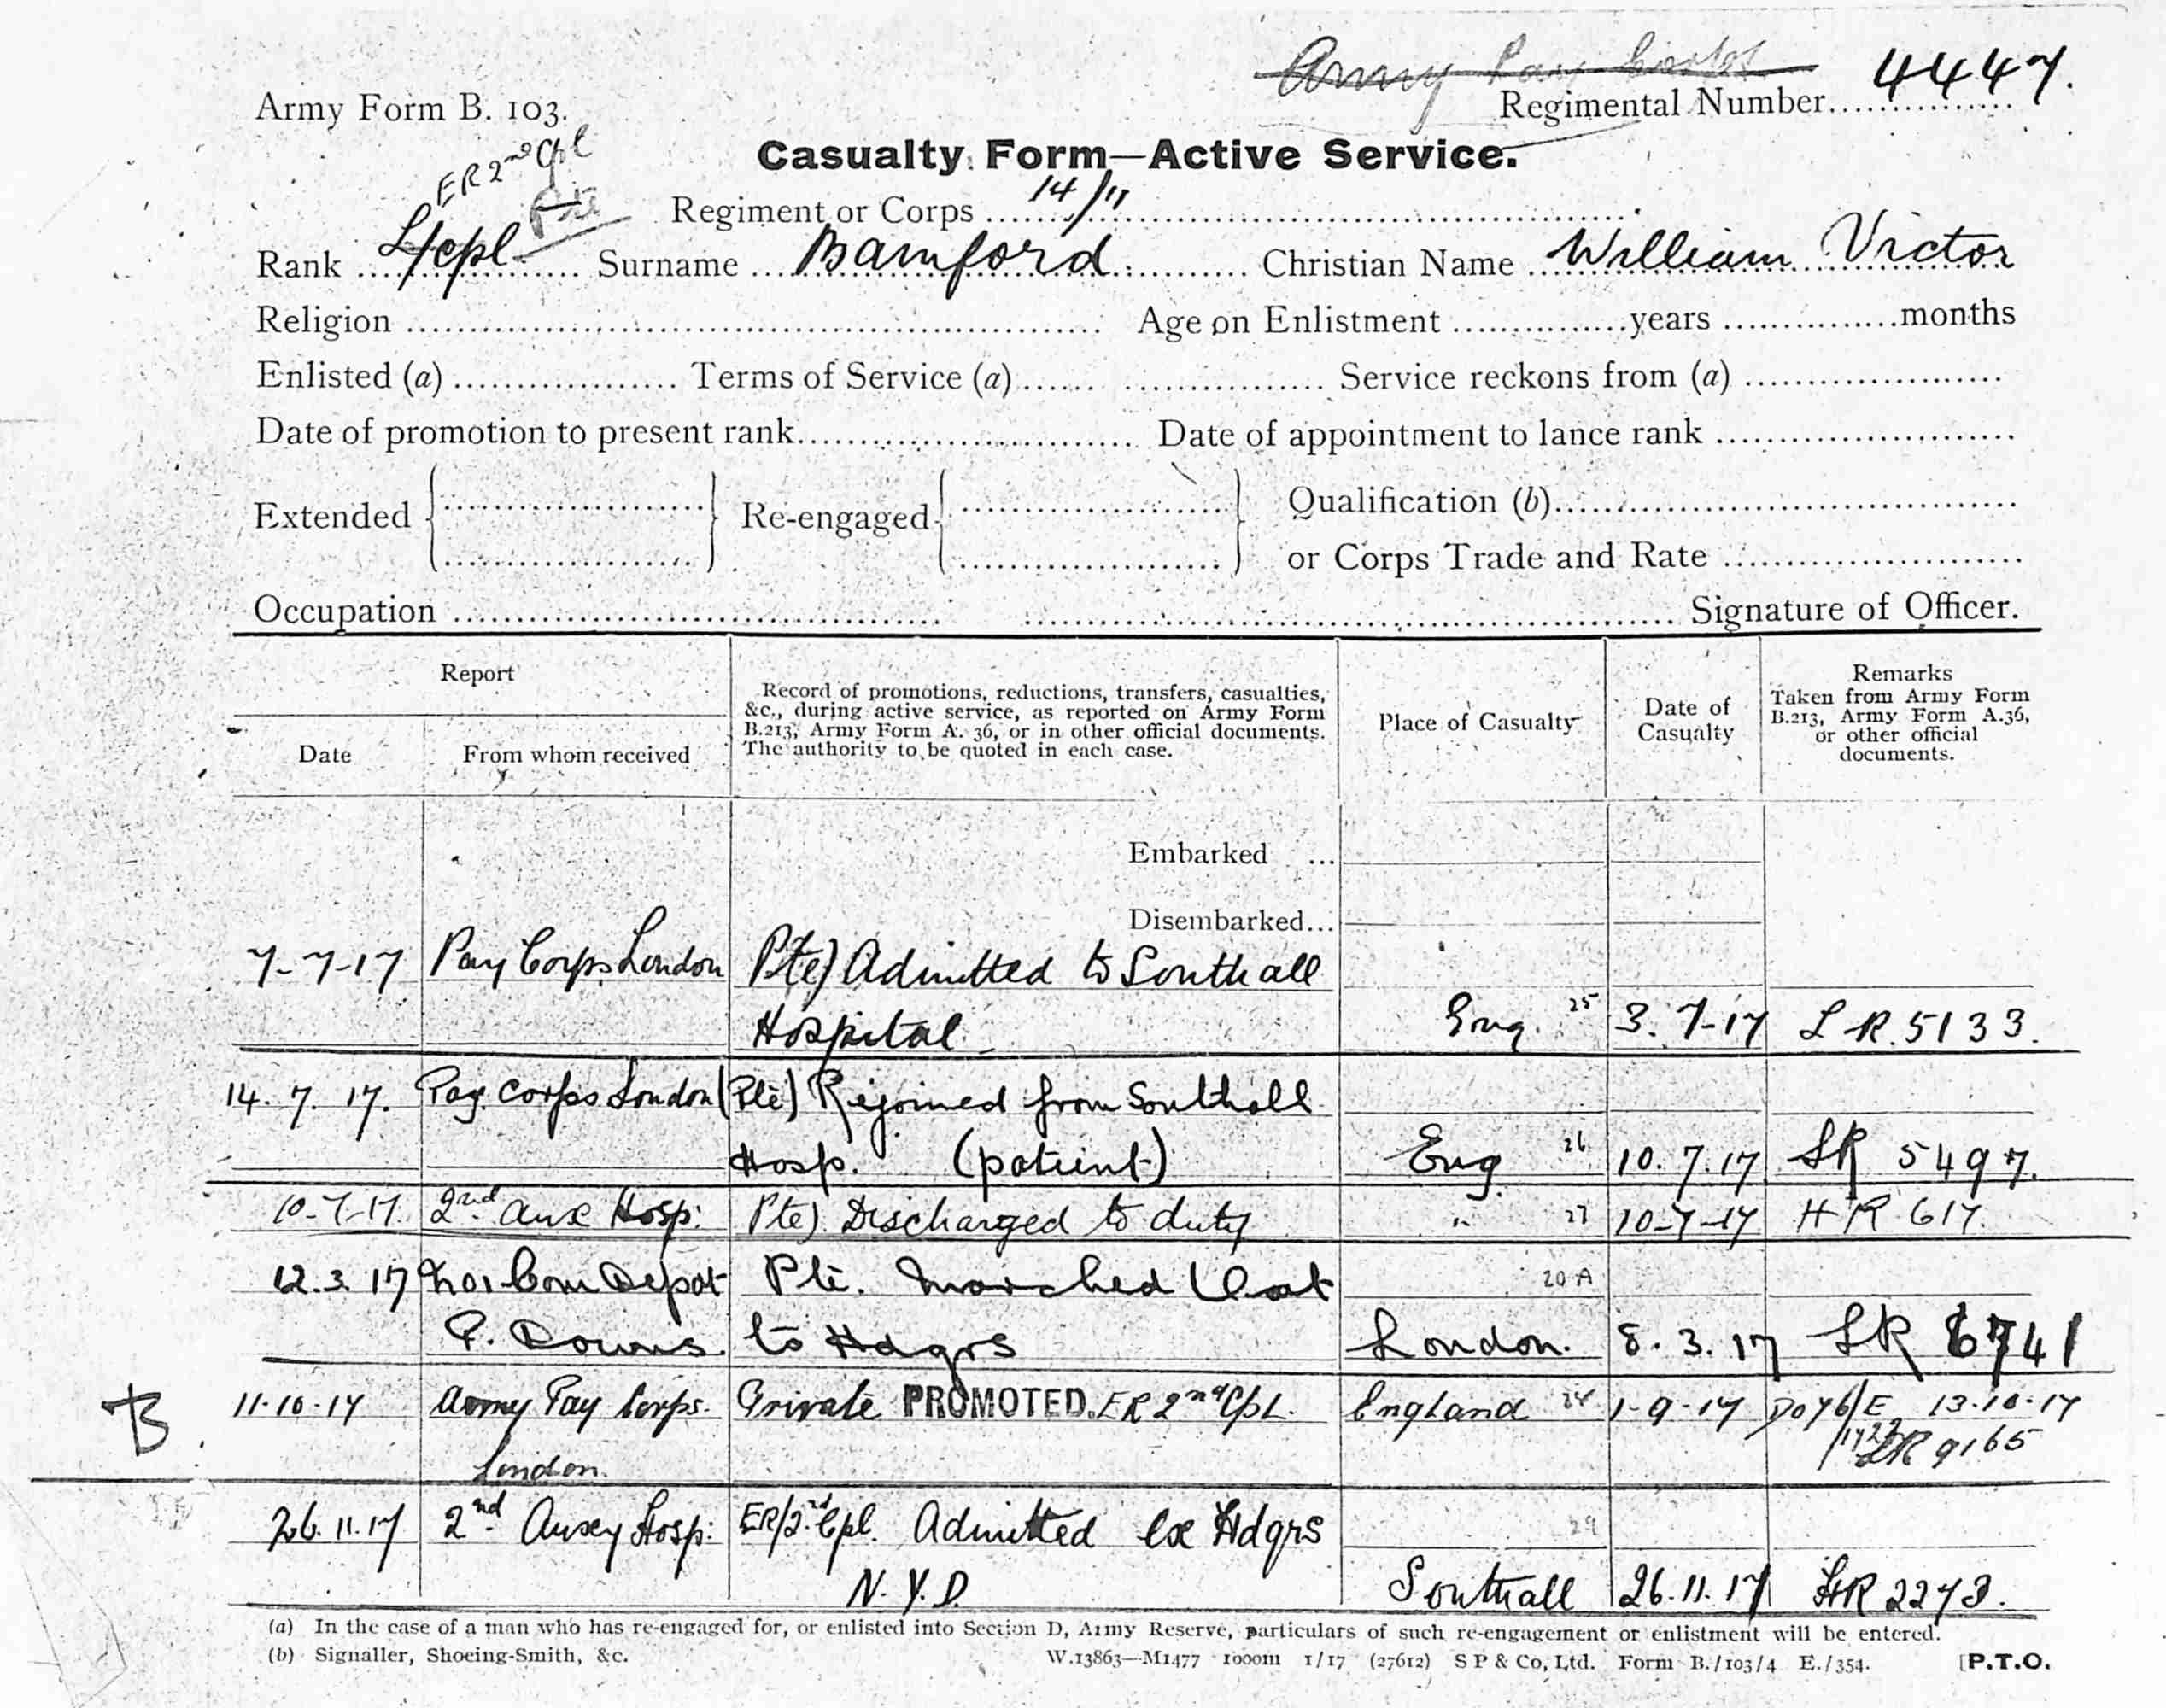 Army Pay Corps
Army Form B. 103. Regimental Number 4447.
Casualty Form—Active Service.
ER 2nd Cpl
Pte
Regiment or Corps 14/11
Rank L/cpl Surname Bamford Christian Name William Victor
Religion Age on Enlistment years months
Enlisted (a) Terms of Service (a) Service reckons from (a)
Date of promotion to present rank Date of appointment to lance rank
Extended Re-engaged Qualification (b)
or Corps Trade and Rate
Occupation Signature of Officer.
Report
Date From whom received
Record of promotions, reductions, transfers, casualties,
&c., during active service, as reported on Army Form
B.213, Army Form A. 36, or in other official documents.
The authority to be quoted in each case.
Place of Casualty
Date of
Casualty
Remarks
Taken from Army Form
B.213, Army Form A.36,
or other official
documents.
Embarked ...
Disembarked...
7-7-17 Pay Corps London Pte) Admitted to Southall
Hospital Eng. 25 3.7-17 LR.5133.
14.7.17. Pay Corps London (Pte) Rejoined from Southall
Hosp. (patient) Eng 26 10.7.17 LR 5497.
10-7-17. 2nd Aux Hosp: Pte) Discharged to duty " 27 10-7-17 HR 617.
12.3.17 No1 Com Depot Pte. Marched Out 20A
P. Downs. to Hdqrs London. 8.3.17 LR 6741
B 11-10-17 Army Pay Corps. Private PROMOTED. ER 2nd Cpl. England 1-9-17 13-10-17
London. LR 9165
26.11.17 2nd Auxy Hosp: ER/2nd Cpl. Admitted ex Hdqrs 29
N.Y.D. Southall 26.11.17 HR 2273.
(a) In the case of a man who has re-engaged for, or enlisted into Section D, Army Reserve, particulars of such re-engagement or enlistment will be entered.
(b) Signaller, Shoeing-Smith, &c. W.13863—M1477 1000m 1/17 (27612) S P & Co, Ltd. Form B./103/4 E./354. [P.T.O.